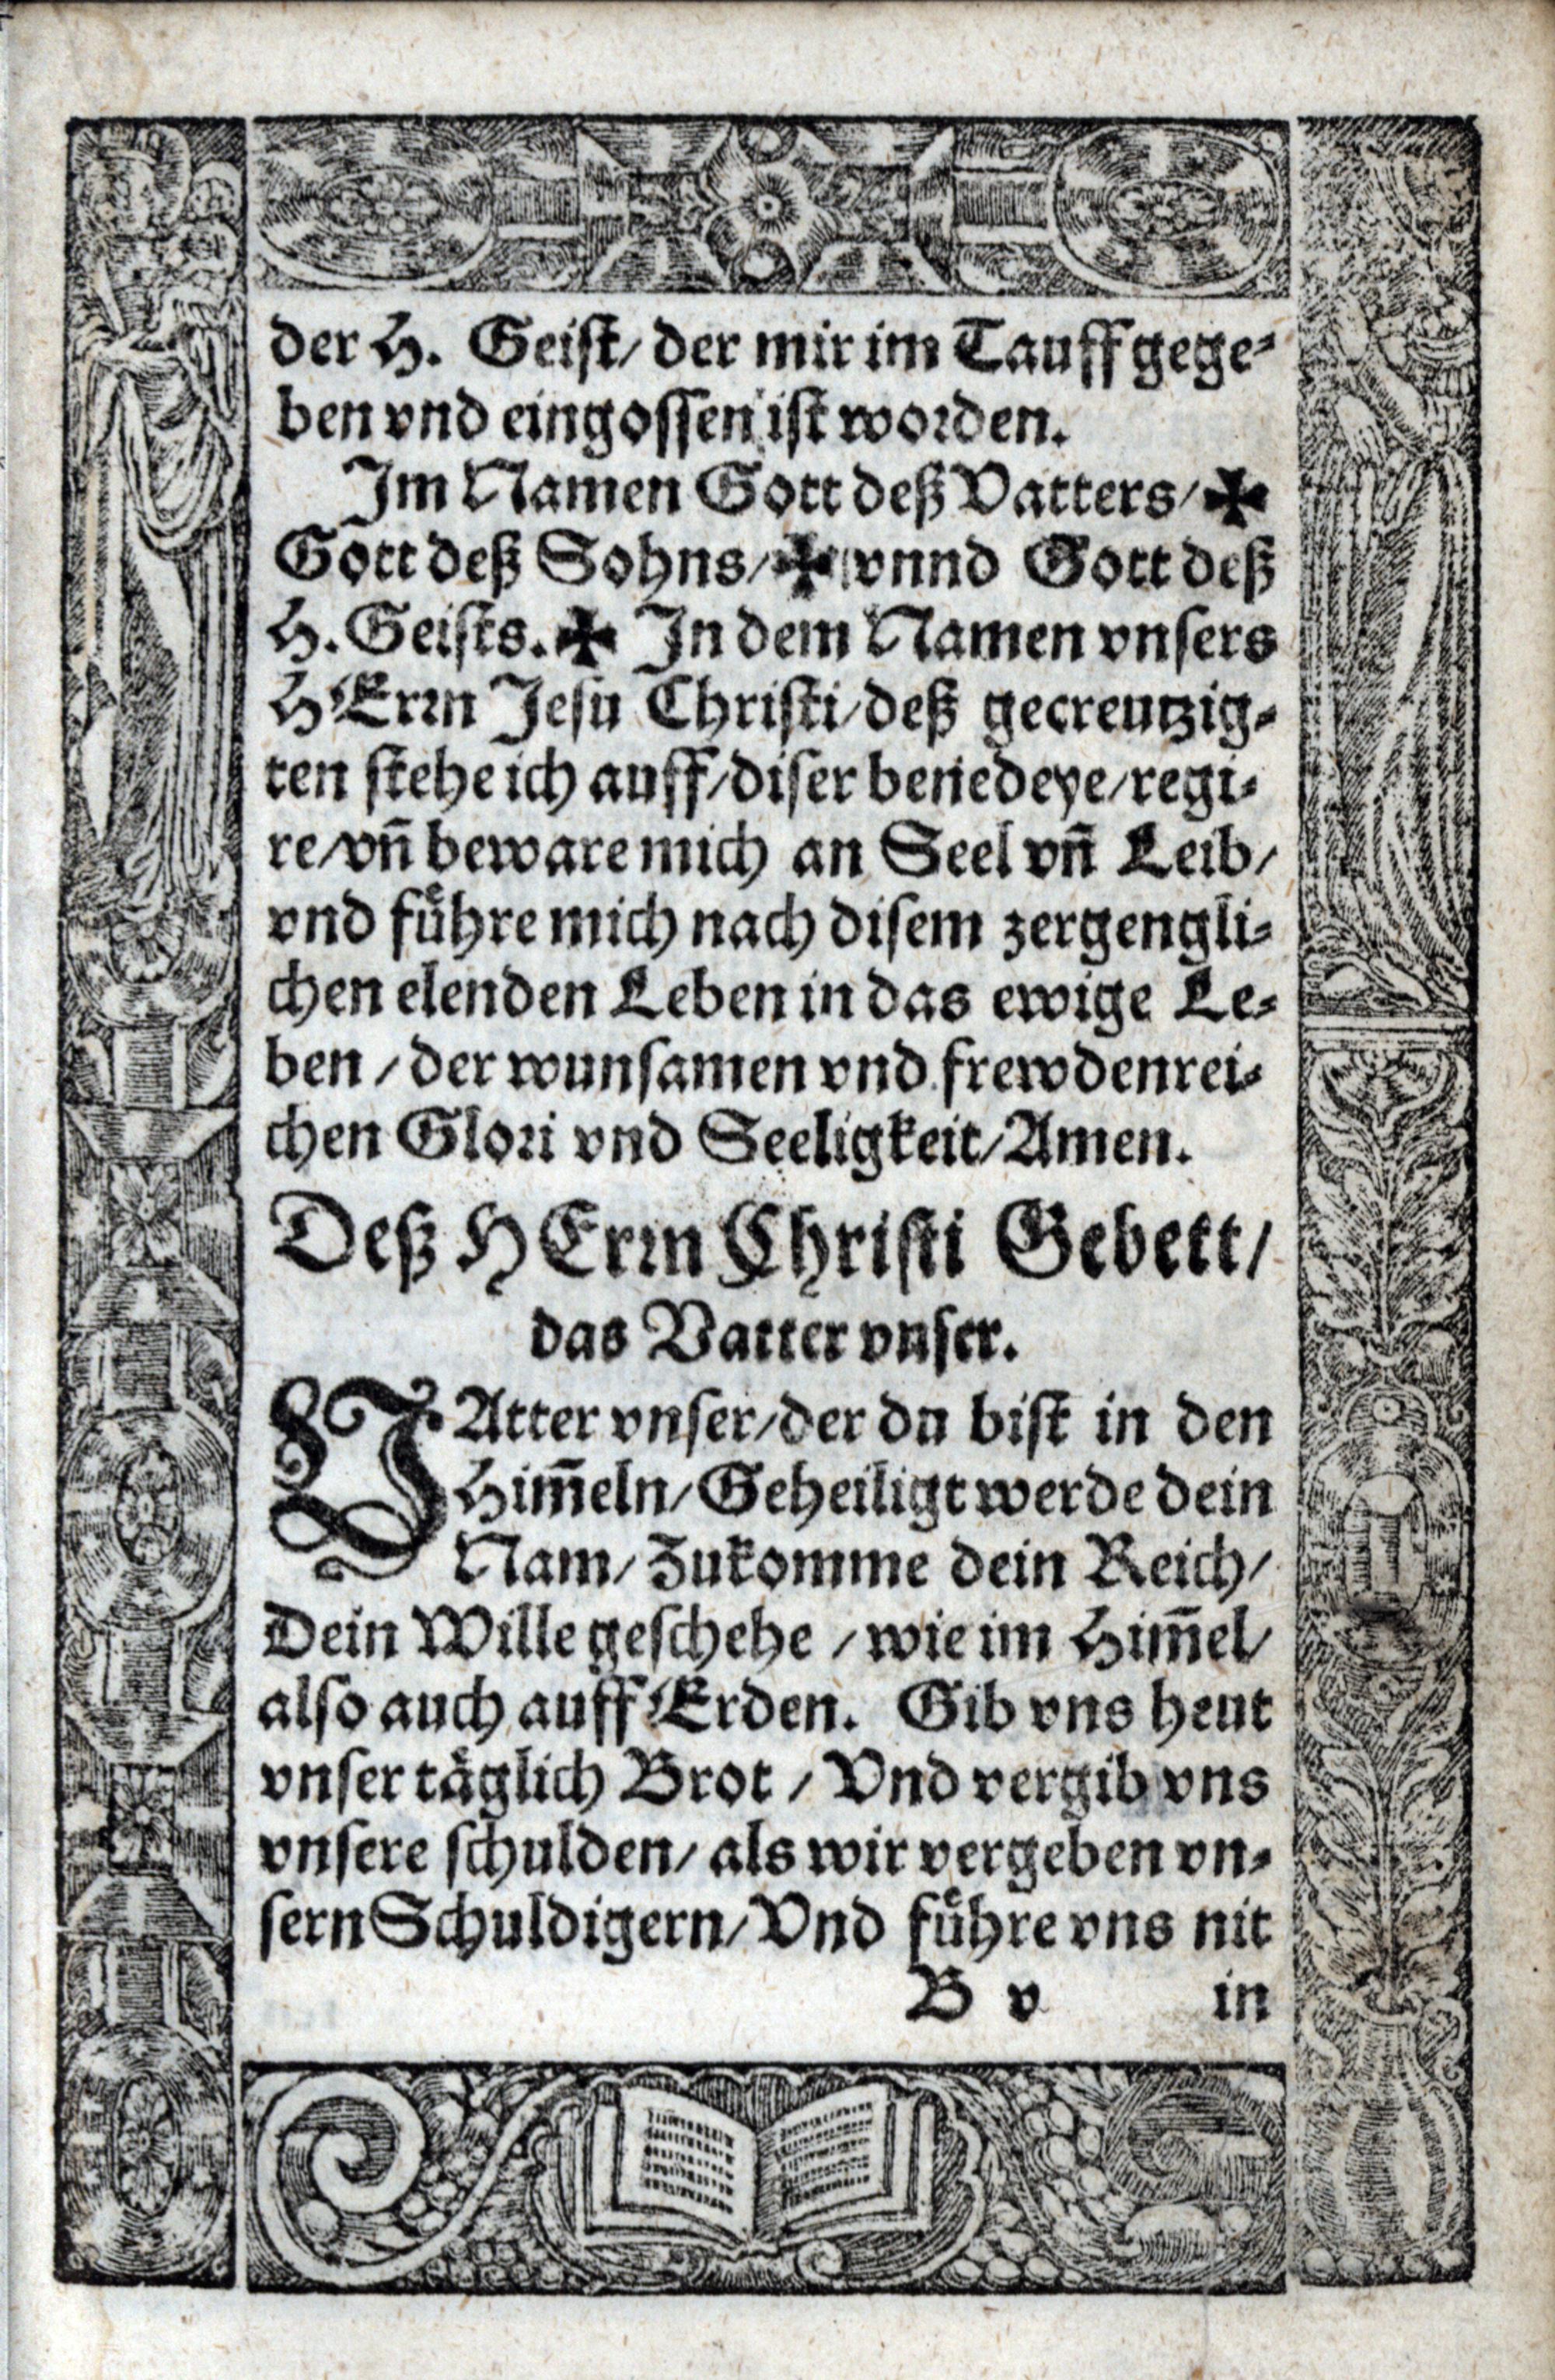 der H. Geist/ der mir im Tauff gege⸗
ben vnd eingossen ist worden.
Im Namen Gott deß Vatters/ ✠
Gott deß Sohns/ ✠ vnnd Gott deß
H. Geists. ✠ In dem Namen vnsers
HErrn Jesu Christi/ deß gecreutzig⸗
ten stehe ich auff/ diser benedeye/ regi⸗
re/ vñ beware mich an Seel vñ Leib/
vnd fuͤhre mich nach disem zergengli⸗
chen elenden Leben in das ewige Le⸗
ben / der wunsamen vnd frewdenrei⸗
chen Glori vnd Seeligkeit/ Amen.
Deß HErrn Christi Gebett/
das Vatter vnser.
VAtter vnser/ der du bist in den
Him̄eln/ Geheiligt werde dein
Nam/ Zukomme dein Reich/
Dein Wille geschehe / wie im Him̄el/
also auch auff Erden. Gib vns heut
vnser taͤglich Brot / Vnd vergib vns
vnsere schulden/ als wir vergeben vn⸗
sern Schuldigern/ Vnd fuͤhre vns nit
B v in